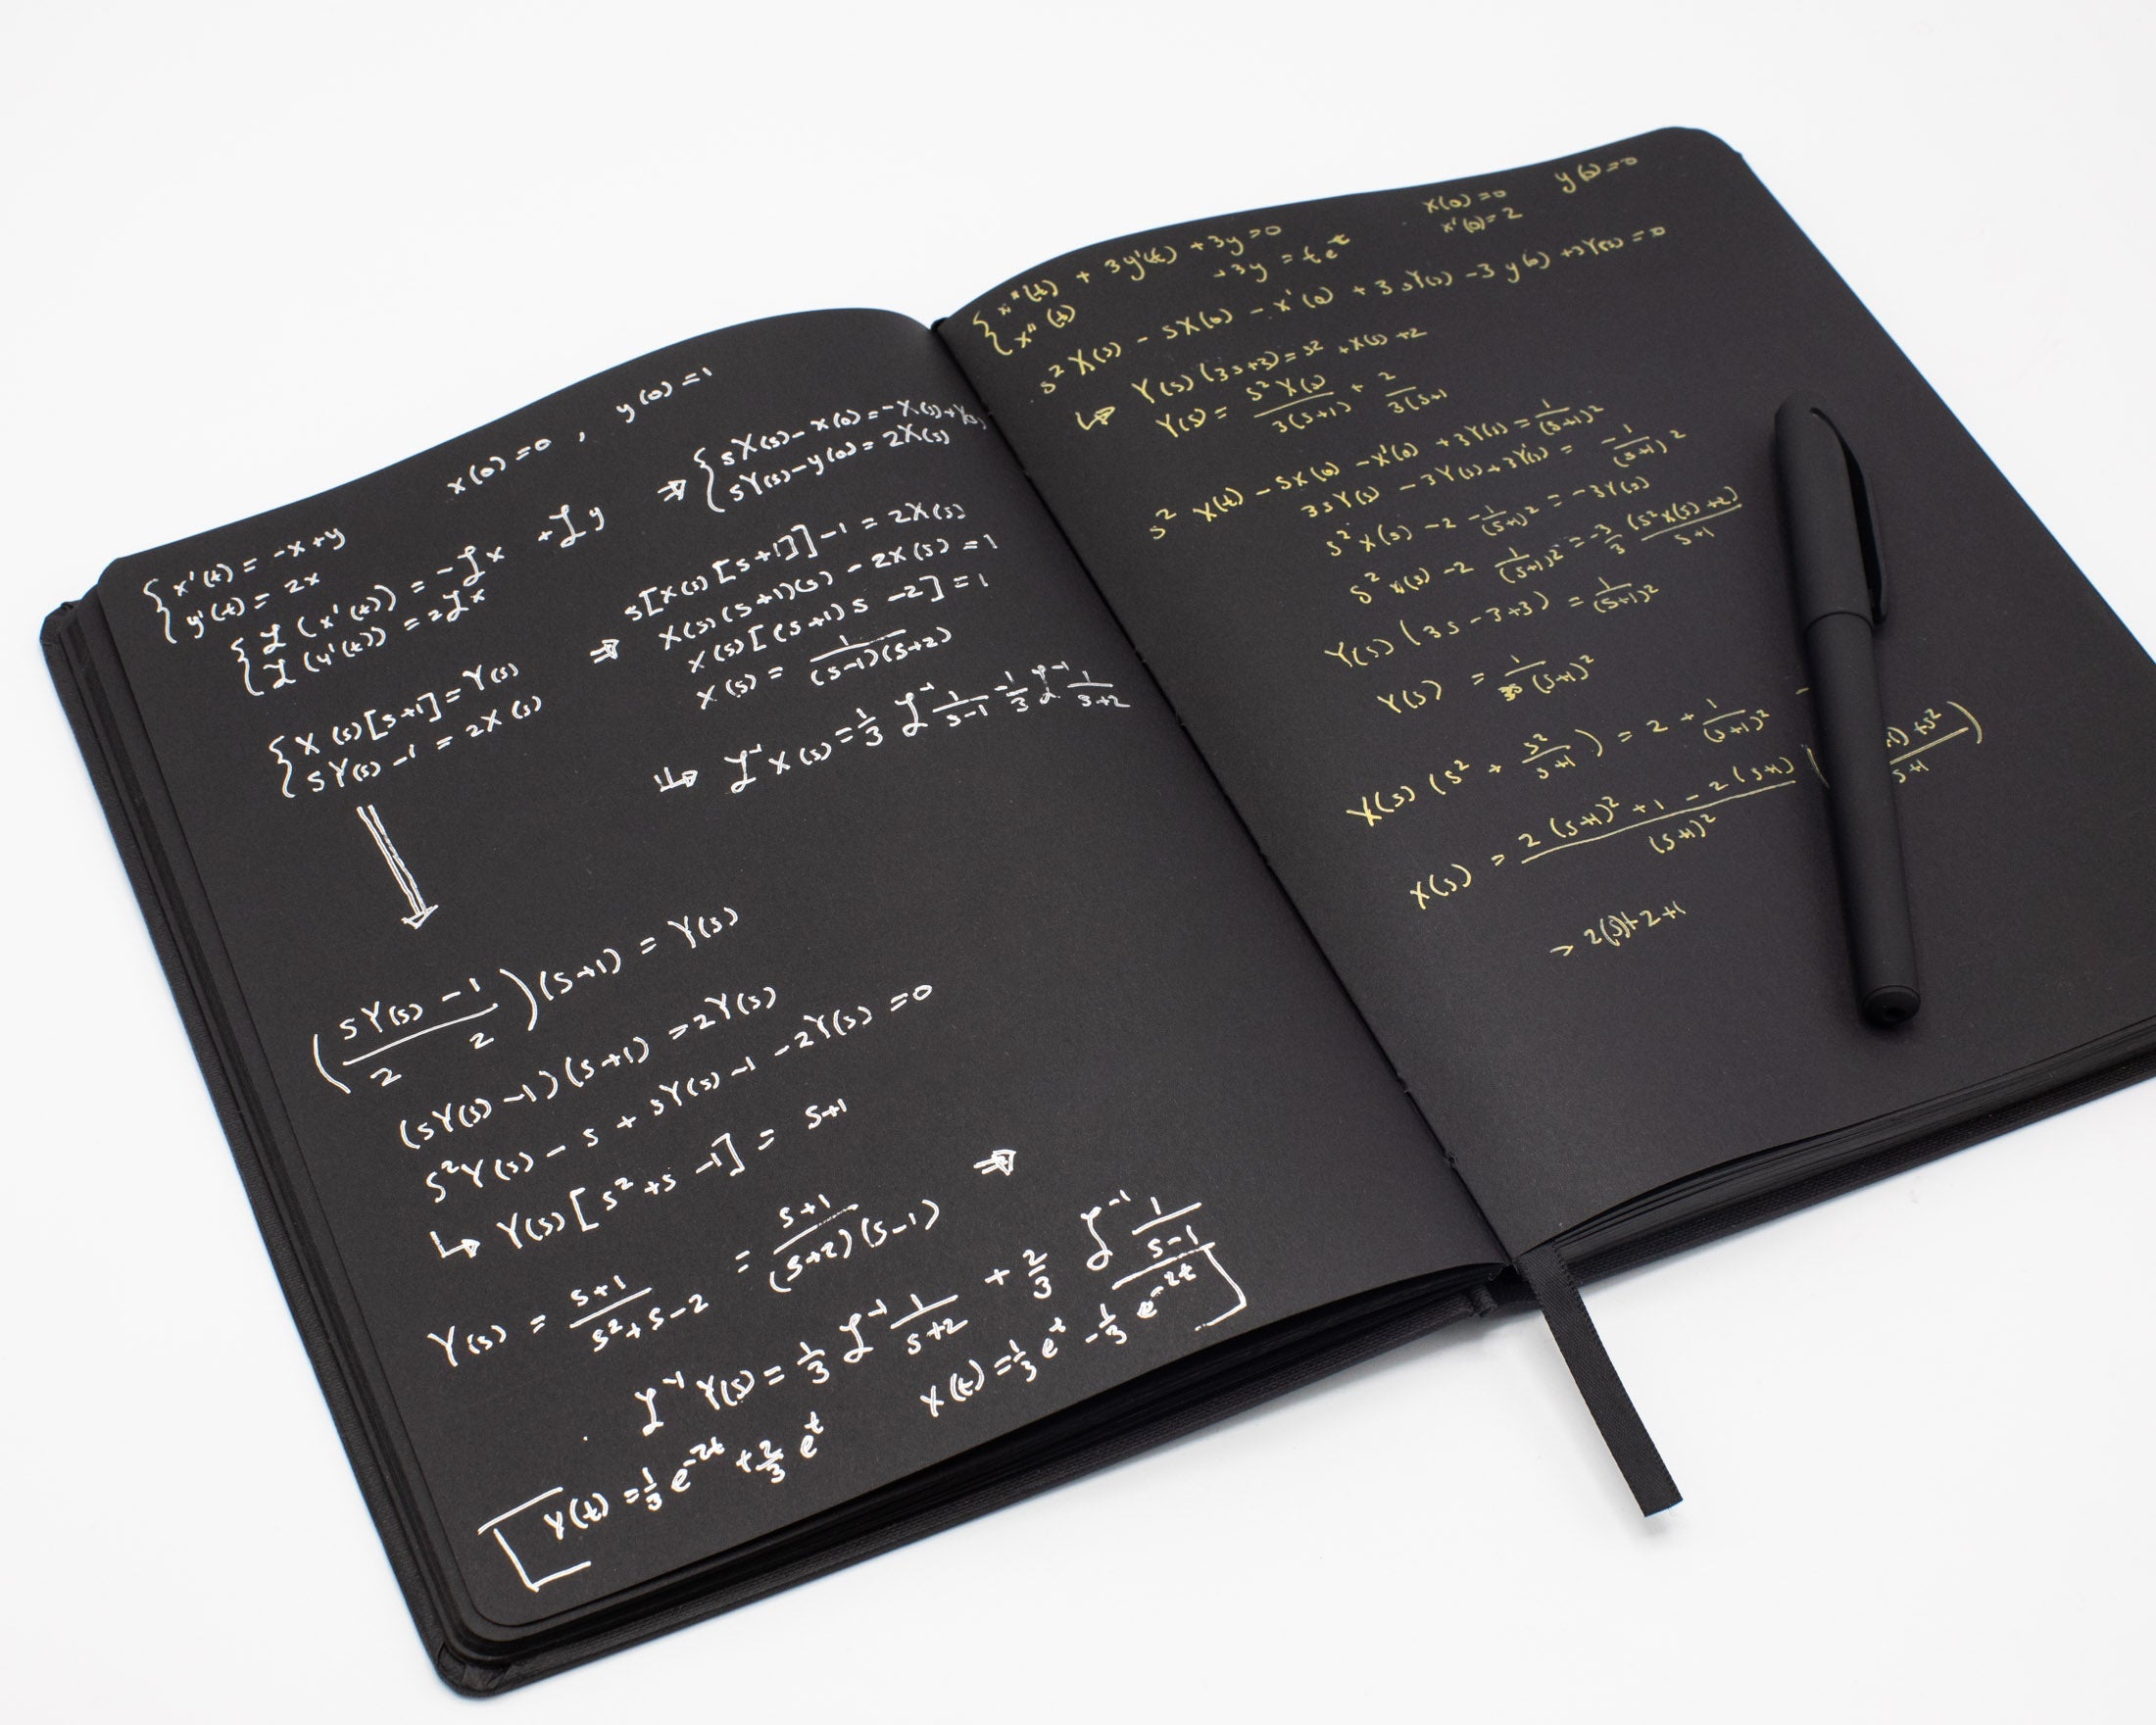 x(0)=0 , y(0)=1
{ x'(t) = -x+y
y'(t) = 2x
{ ℒ(x'(t)) = -ℒx +ℒy
ℒ(y'(t)) = 2ℒx
{ X(s)[s+1] = Y(s)
sY(s)-1 = 2X(s)
⇒ { sX(s)-x(0) = -X(s)+Y(s)
sY(s)-y(0) = 2X(s)
⇒ s[X(s)[s+1]]-1 = 2X(s)
X(s)(s+1)(s) - 2X(s) = 1
X(s)[(s+1)s -2] = 1
X(s) = 1/((s-1)(s+2))
↳ ℒ⁻¹ X(s) = 1/3 ℒ⁻¹ 1/(s-1) - 1/3 ℒ⁻¹ 1/(s+2)
((sY(s) -1)/2 2)(s+1) = Y(s)
(sY(s)-1)(s+1) = 2Y(s)
s²Y(s) - s + sY(s) -1 -2Y(s) = 0
↳ Y(s)[s²+s -1] = s+1
Y(s) = (s+1)/(s²+s-2) = (s+1)/((s+2)(s-1)) ⇒
ℒ⁻¹ Y(s) = 1/3 ℒ⁻¹ 1/(s+2) + 2/3 ℒ⁻¹ 1/(s-1)
Y(t) = 1/3 e^-2t + 2/3 e^t X(t) = 1/3 e^t - 1/3 e^-2t
x(0)=0 y(0)=0
x'(0)=2
{ x''(t) + 3y'(t) + 3y = 0
x''(t) +3y = te^t
s²X(s) - sX(0) - x'(0) + 3sY(s) -3y(0) +3Y(s) = 0
↳ Y(s)(3s+3) = s² +X(s) +2
Y(s) = s²X(s)/3(s+1) + 2/3(s+1
s² X(t) - sX(0) -X'(0) +3Y(s) = 1/(s+1)²
3sY(s) -3Y(s)+3Y(s) = -1/(s+1)²
s²X(s) -2 -1/(s+1)² = -3Y(s)
s²X(s) -2 1/(s+1)² = -3/3 (s²X(s)+2)/(s+1)
Y(s)(3s-3+3) = 1/(s+1)²
Y(s) = 1/3s(s+1)²
X(s)(s² + s²/(s+1)) = 2 + 1/(s+1)² -
X(s) = (2(s+1)²+1 - 2(s+1))/(s+1)² ( +1)+s²/(s+1) )
→ 2(s)+2+1